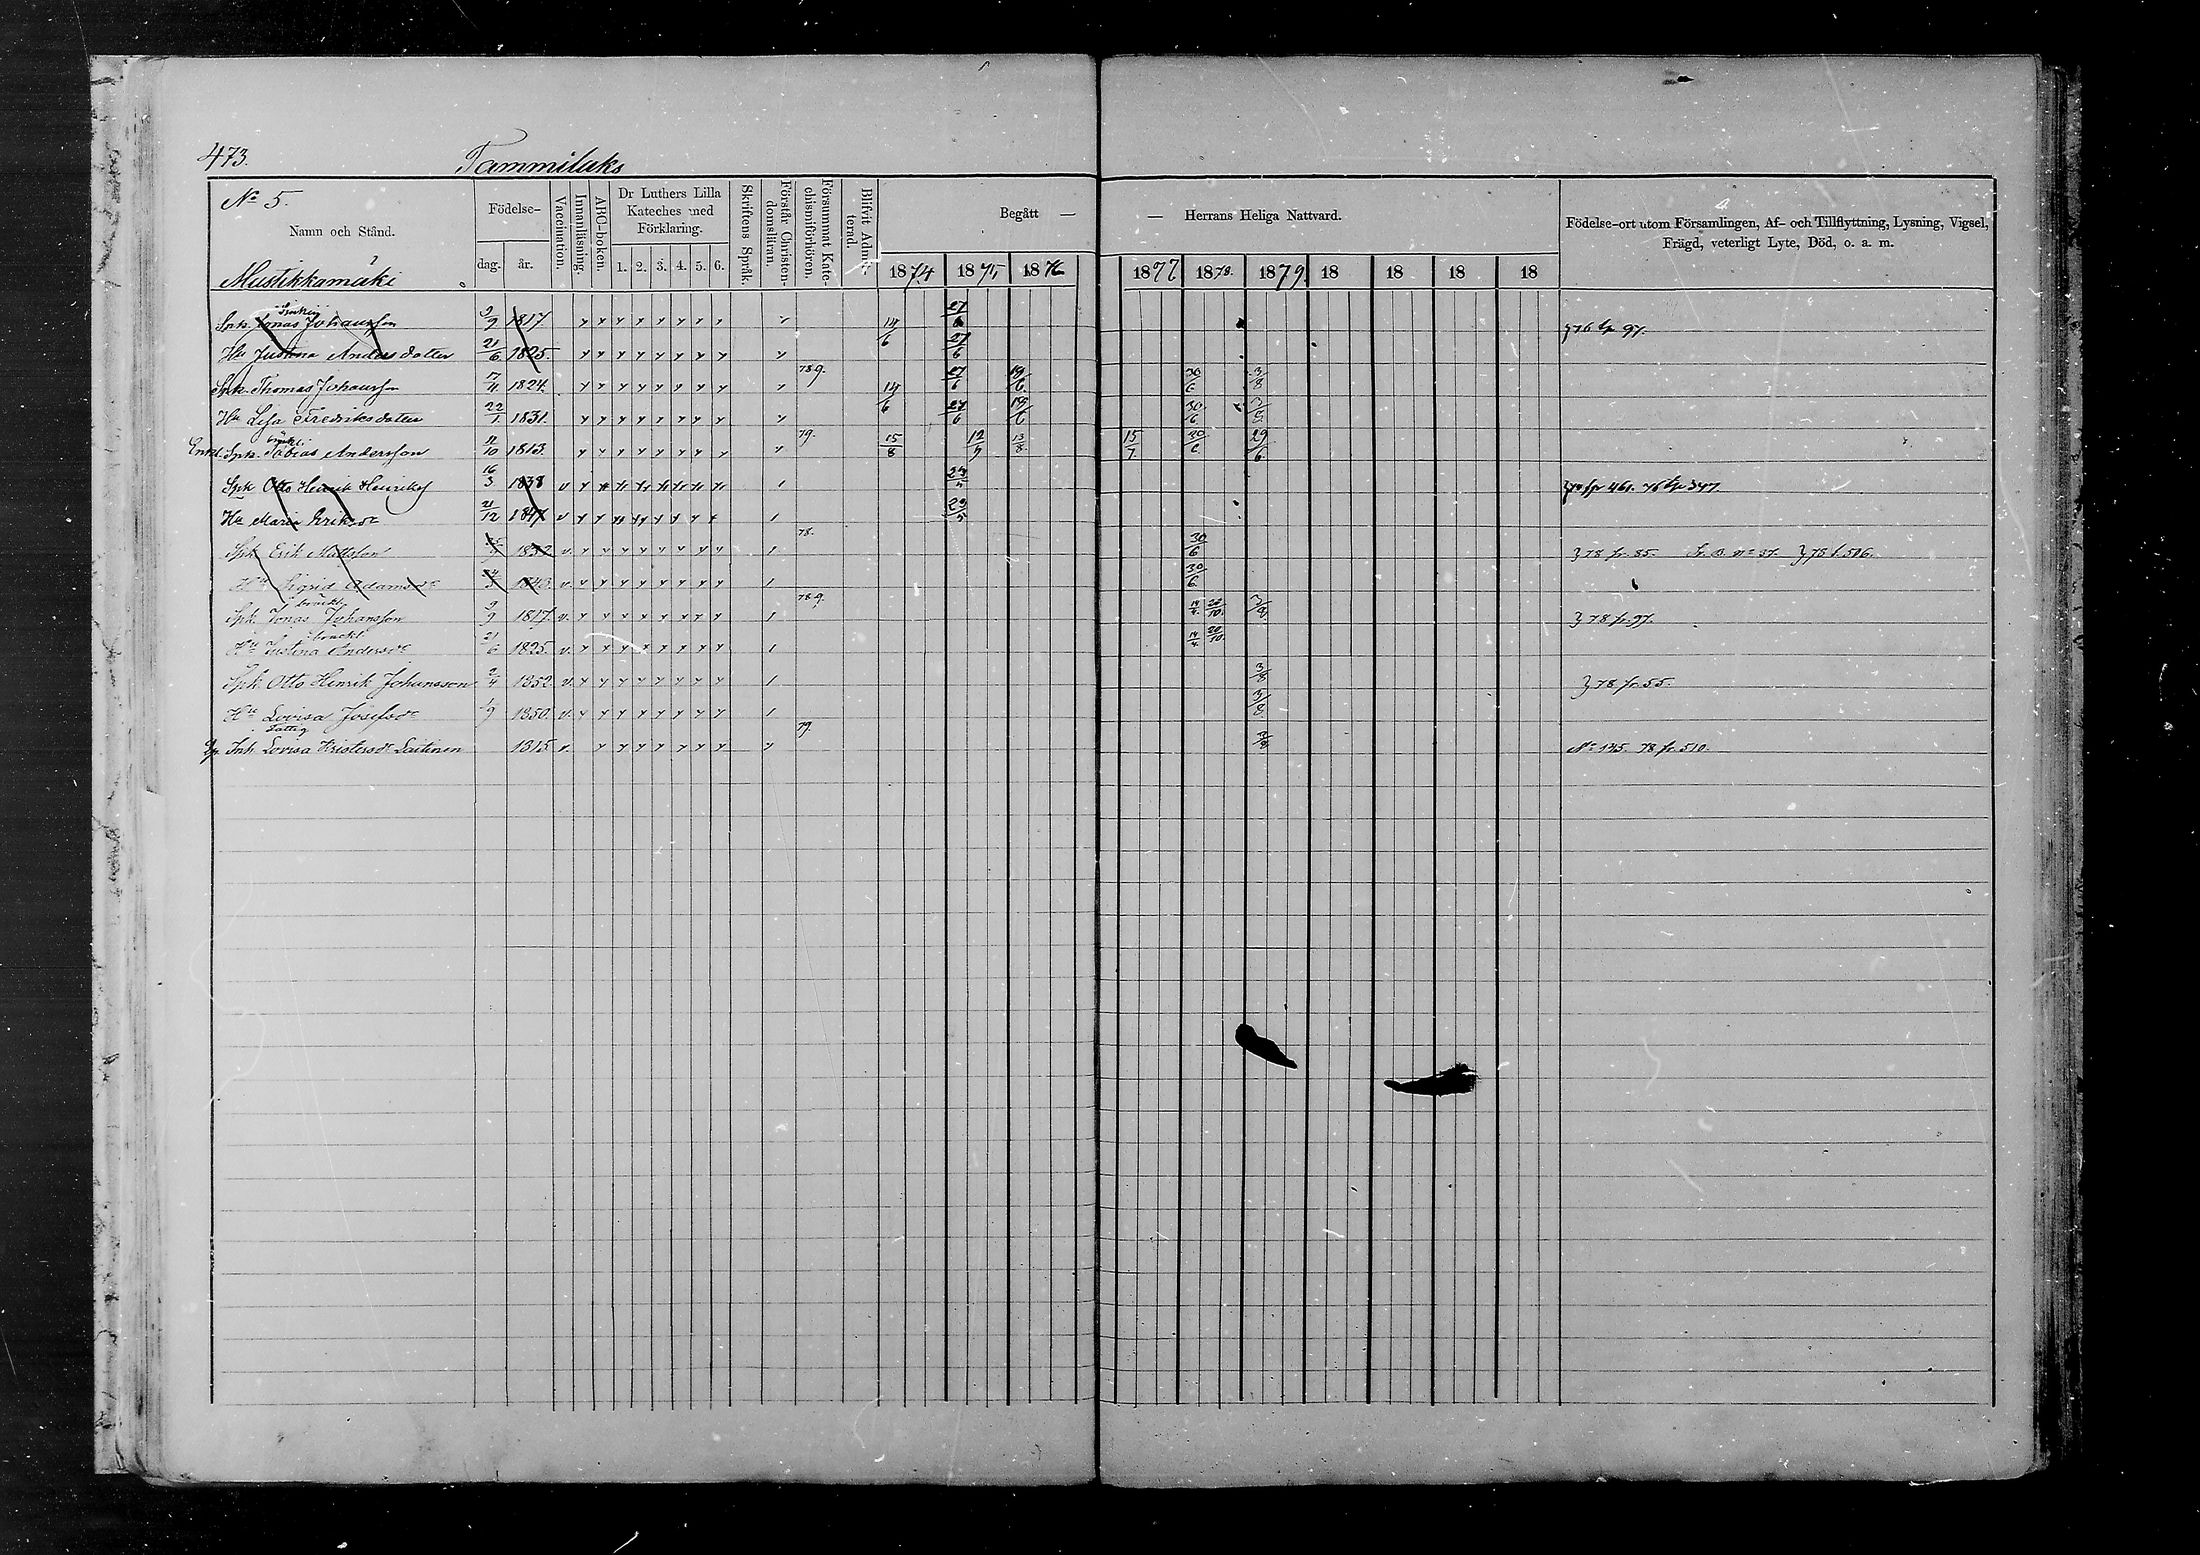 473.
Tammilaks
No 5.
Namn och Stånd.
Födelse-
dag. år.
Vaccination.
Innanläsning.
ABC-boken.
Dr Luthers Lilla Kateches med Förklaring.
1. 2. 3. 4. 5. 6.
Skriftens Språk.
Förstår Christendomsläran.
Försummat Katechismiförhören.
Blifvit Admitterad.
Begått — — Herrans Heliga Nattvard.
1874 1875, 1876 1877 1878. 1879. 18 18 18 18
Födelse-ort utom Församlingen, Af- och Tillflyttning, Lysning, Vigsel, Frägd, veterligt Lyte, Död, o. a. m.
Mustikkamäki
Spk. Jonas Johansson 9/9 1817 14/6 27/6 76 97.
Hu Justina Andersdotter 21/6 1825. 27/6
Spk. Thomas Johansson 1824. 789. 14/6 27/6 19/6 30/6 3/8
Hu Lisa Fredriksdotter 22/7 1831. 27/6 19/6 30/6 3/8
bräckl.
Enkl. Spk. Tobias Andersson 11/10 1813. 79. 15/8 12/9 13/8. 15/7 30/6 29/6
Spk Otto Henrik Henriks 16/3 1838 v 461. 76 347.
Hu Maria Eriksdr 21/12 1847 v 23/5
Spk Erik Mattsson 1832 v. 78. 30/6 78 fr. 85. No 37. 75 f. 506.
Hu Sigrid Adamsdr 1843. v. 30/6
bräckl.
Spk. Jonas Johansson 9/9 1817. v. 789. 14/4 20/10. 3/8 78 fr. 97.
bräckl.
Hu Justina Andersdr 21/6 1825. v. 14/4 20/10.
Spk. Otto Henrik Johansson 2/4 1852. v. 3/8 78 fr. 55.
Hu Lovisa Josefsdr 1/9 1850. v. 3/8
Fattig
Inh. Lovisa Kristersdr Laitinen 1815 v. 79. 3/8 No 135. 78 fr. 510.